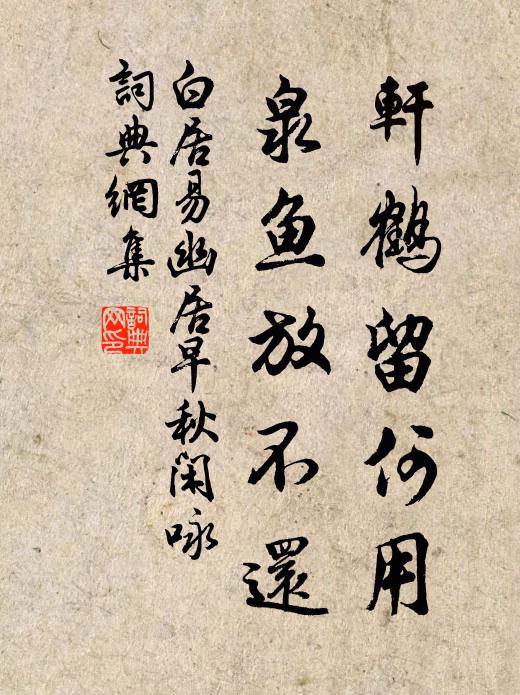 軒鶴留何用
泉鱼放不還
白居易幽居早秋閑咏
詞典網集
詞典
网印